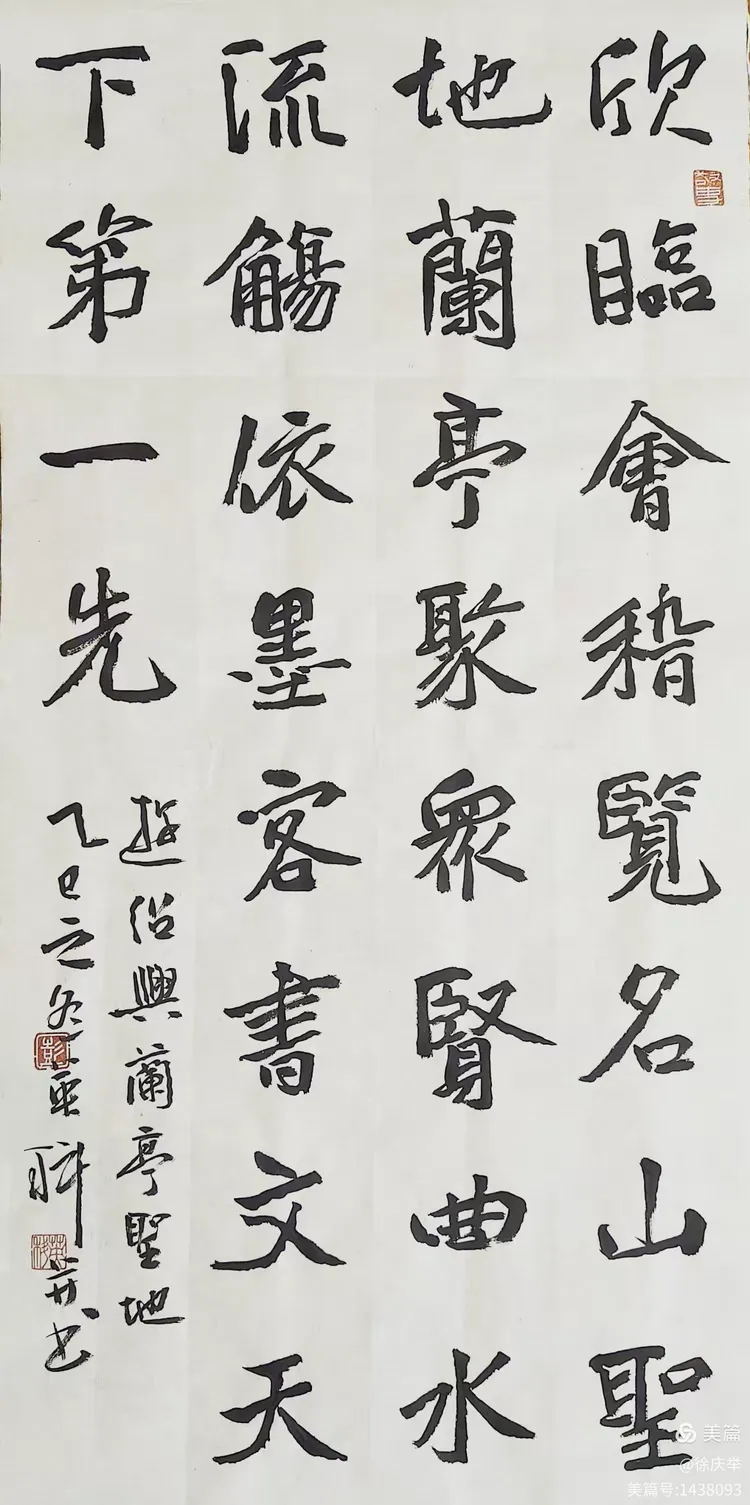 欣臨會稽覽名山聖
地蘭亭聚衆賢曲水
流觴依墨客書文天
下第一先
遊紹興蘭亭聖地
乙巳之冬
并书
彭
美篇
@徐庆举
美篇号:1438093